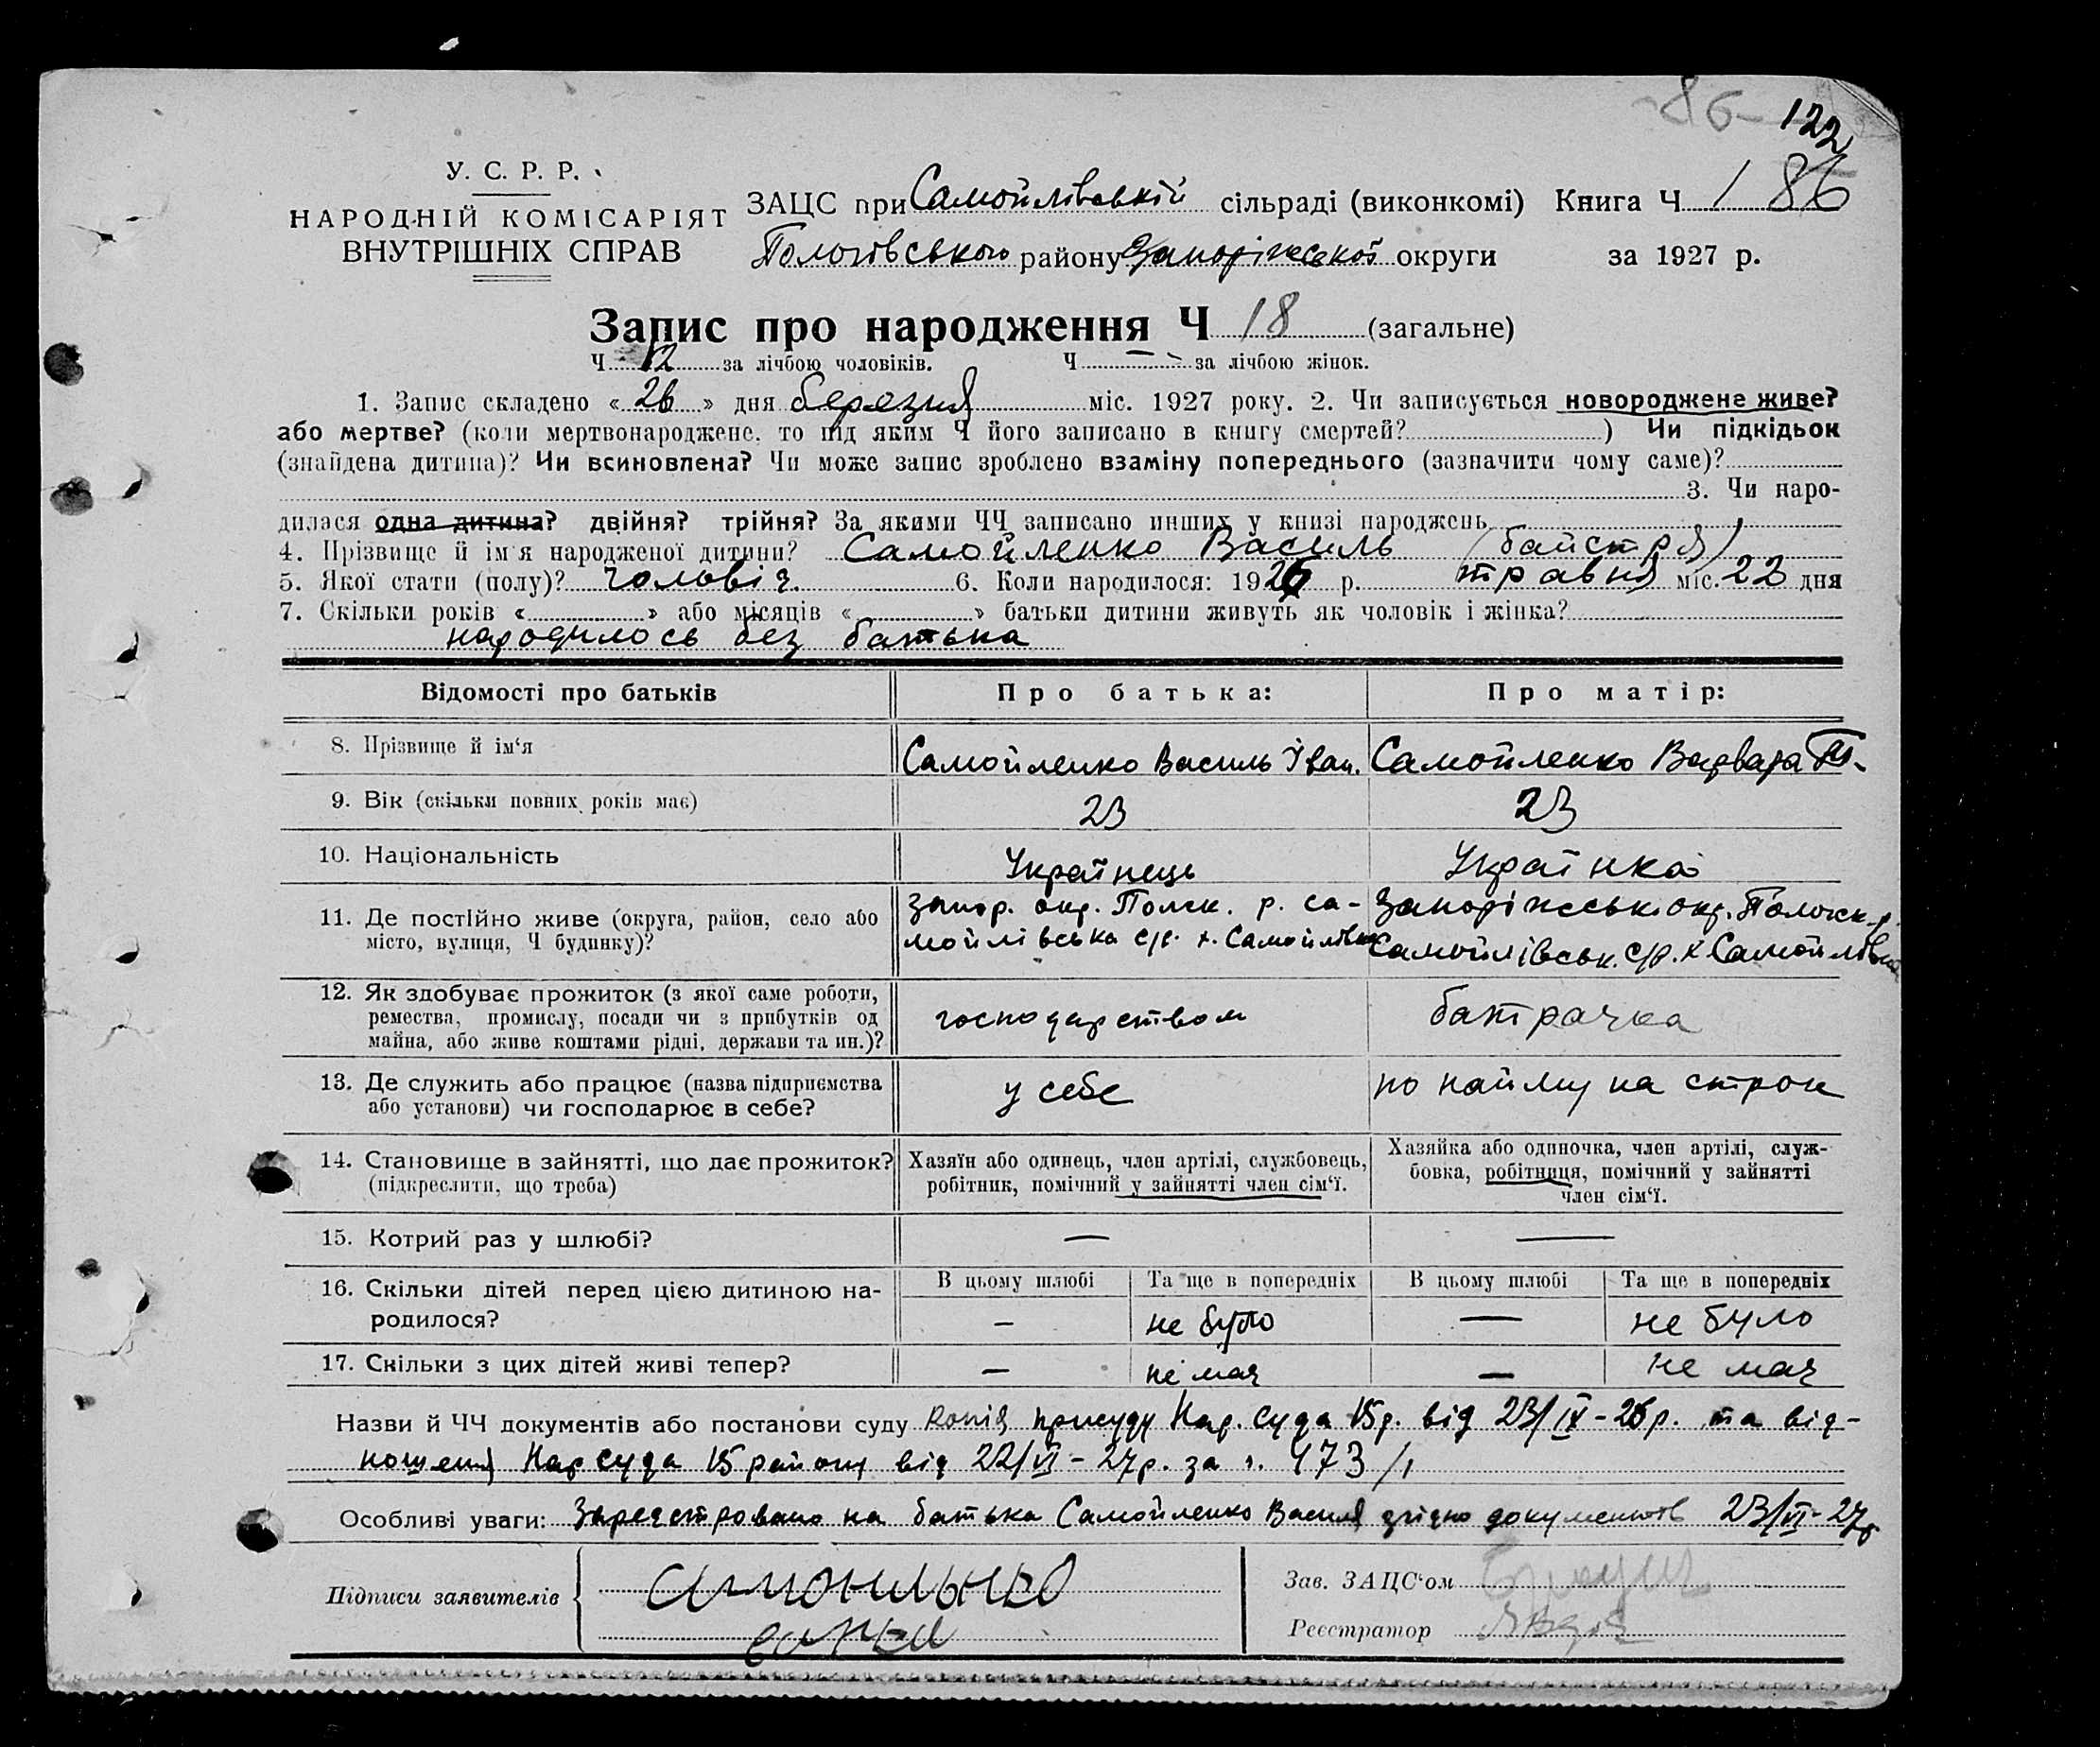 86 122
У. С. Р. Р.
НАРОДНІЙ КОМІСАРІЯТ
ВНУТРІШНІХ СПРАВ
ЗАЦС при Самойлівській сільраді (виконкомі) Книга Ч 1 86
Пологівського району Запоріжської округи за 1927 р.
Запис про народження Ч 18 (загальне)
Ч 12 за лічбою чоловіків. Ч — за лічбою жінок.
1. Запис складено « 26 » дня березня міс. 1927 року. 2. Чи записується новороджене живе?
або мертве? (коли мертвонароджене, то під яким Ч його записано в книгу смертей? ) Чи підкідьок
(знайдена дитина)? Чи всиновлена? Чи може запис зроблено взаміну попереднього (зазначити чому саме)?
3. Чи наро-
дилася одна дитина? двійня? трійня? За якими ЧЧ записано инших у книзі народжень
4. Прізвище й ім'я народженої дитини? Самойленко Василь (байстря)
5. Якої стати (полу)? чоловіч. 6. Коли народилося: 1926 р. травня міс. 22 дня
7. Скільки років « » або місяців « » батьки дитини живуть як чоловік і жінка?
народилось без батька
Відомості про батьків Про батька: Про матір:
8. Прізвище й ім'я Самойленко Василь Іван. Самойленко Варвара
9. Вік (скільки повних років має) 23 23
10. Національність Українець Українка
11. Де постійно живе (округа, район, село або
місто, вулиця, Ч будинку)?
запор. окр. Полог. р. са-
мойлівська с/р. х. Самойлівка
Запоріжськ. окр. Пологск. р.
Самойлівськ. с/р. х. Самойлівка
12. Як здобуває прожиток (з якої саме роботи,
ремества, промислу, посади чи з прибутків од
майна, або живе коштами рідні, держави та ин.)?
господарством батрачка
13. Де служить або працює (назва підприємства
або установи) чи господарює в себе?
у себе по найму на строк
14. Становище в зайнятті, що дає прожиток?
(підкреслити, що треба)
Хазяїн або одинець, член артілі, службовець,
робітник, помічний у зайнятті член сім'ї.
Хазяйка або одиночка, член артілі, служ-
бовка, робітниця, помічний у зайнятті
член сім'ї.
15. Котрий раз у шлюбі? — —
16. Скільки дітей перед цією дитиною на-
родилося?
В цьому шлюбі Та ще в попередніх В цьому шлюбі Та ще в попередніх
— не було — не було
17. Скільки з цих дітей живі тепер? — не має — не має
Назви й ЧЧ документів або постанови суду копія присуду Нар. суда 15 р. від 23/IX-26 р. та від-
ношення Нарсуда 15 району від 22/VI-27р. за ч. 473/1
Особливі уваги: Зареєстровано на батька Самойленко Василя згідно документів 23/VI-27р
Підписи заявителів
Зав. ЗАЦС'ом
Реєстратор